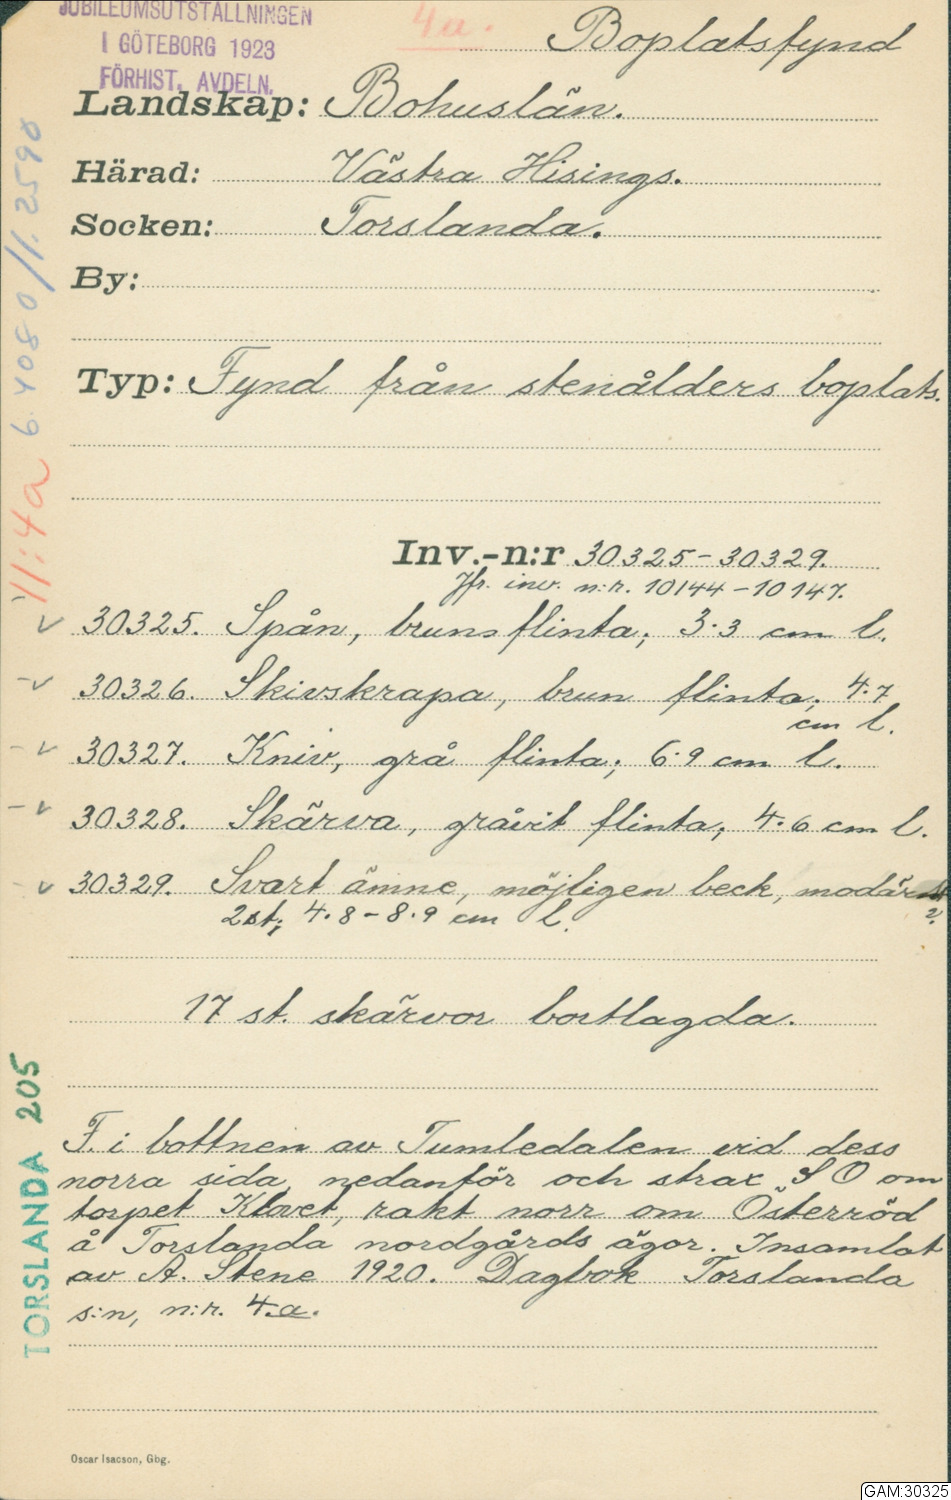 JUBILEUMSUTSTÄLLNINGEN
I GÖTEBORG 1923
FÖRHIST. AVDELN.
4a.
Boplatsfynd
Landskap: Bohuslän.
Härad: Västra Hisings.
Socken: Torslanda.
By:
Typ: Fynd från stenålders boplats.
Inv.-n:r 30325-30329.
Jfr. inv. n:r. 10144-10147.
30325. Spån, bruns flinta; 3.3 cm l.
30326. Skivskrapa, brun flinta; 4.7
cm l.
30327. Kniv, grå flinta; 6.9 cm l.
30328. Skärva, gråvit flinta; 4.6 cm l.
30329. Svart ämne, möjligen beck, modärnt
?
2 st; 4.8-8.9 cm l.
17 st. skärvor bortlagda.
F. i bottnen av Tumledalen vid dess
norra sida, nedanför och strax S O om
torpet Klovet, rakt norr om Österröd
å Torslanda nordgårds ägor. Insamlat
av A. Stene 1920. Dagbok Torslanda
s:n, n:r. 4.a.
11:4a 6.4080/1.2590
TORSLANDA 205
Oscar Isacson, Gbg.
GAM:30325